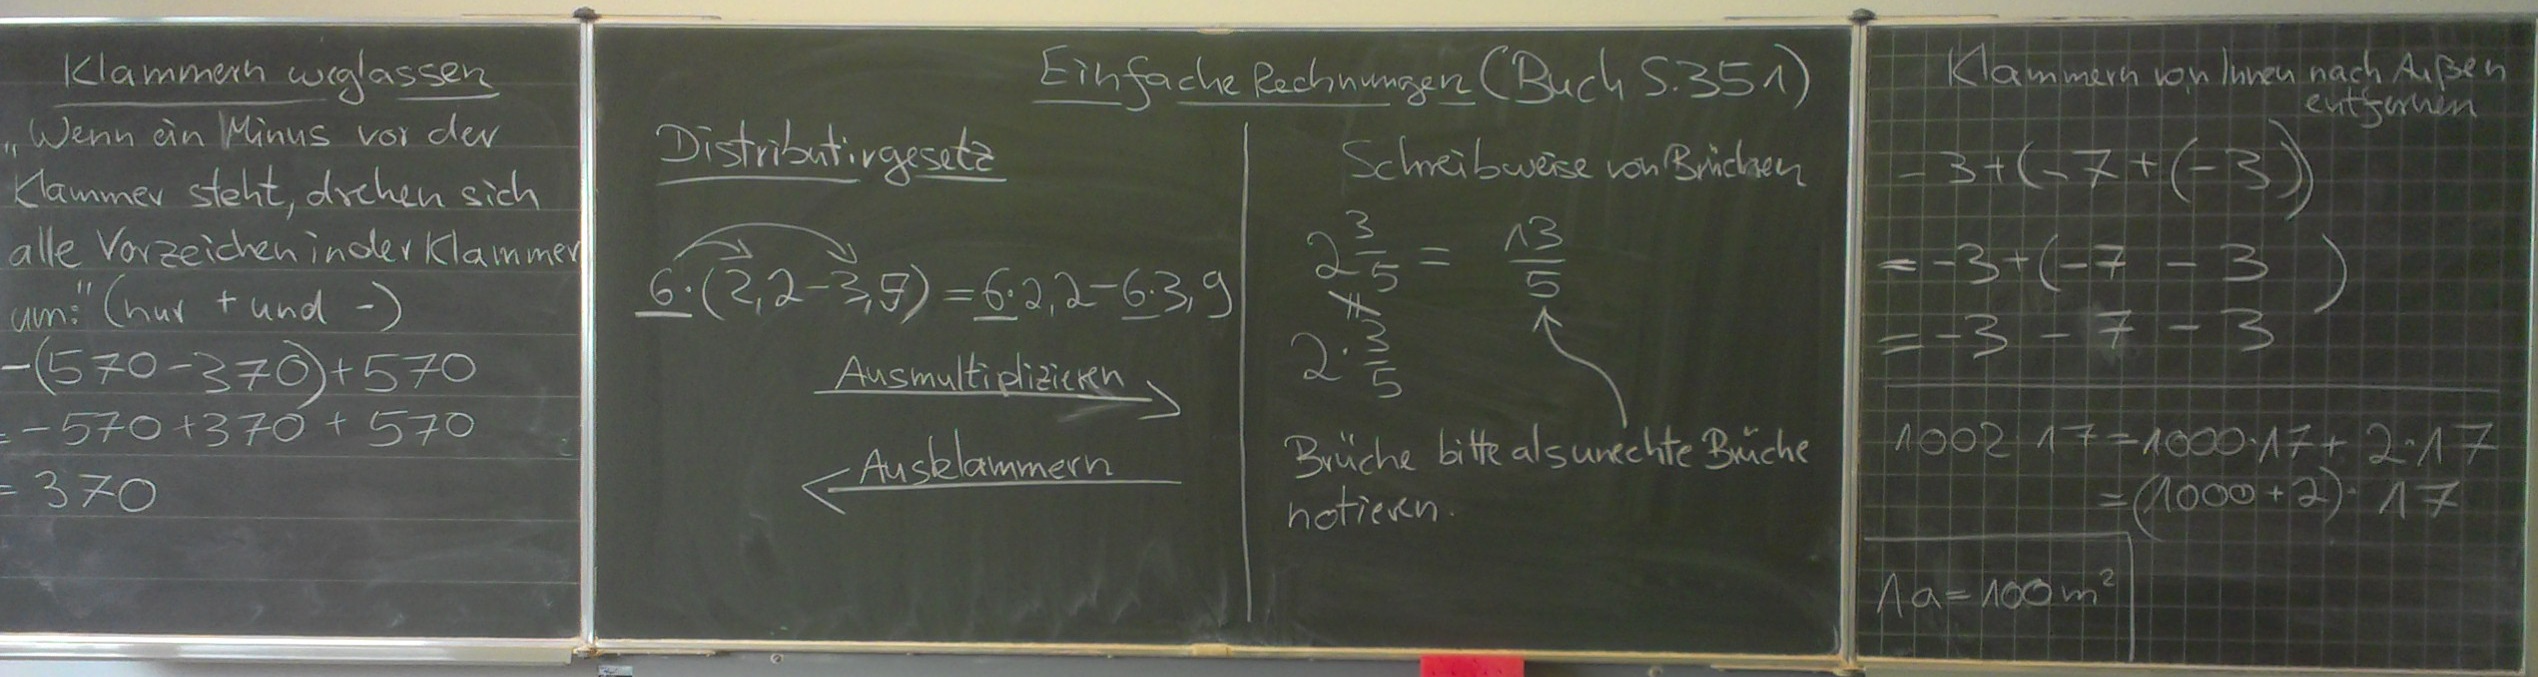 Klammern weglassen
„Wenn ein Minus vor der
Klammer steht, drehen sich
alle Vorzeichen in der Klammer
um:" (nur + und -)
-(570-370)+570
= -570+370+570
= 370
Einfache Rechnungen (Buch S.351)
Distributivgesetz
6·(2,2-3,9) = 6·2,2-6·3,9
Ausmultiplizieren
Ausklammern
Schreibweise von Brüchen
2 3/5 = 13/5
≠
2·3/5
Brüche bitte als unechte Brüche
notieren.
Klammern von Innen nach Außen
entfernen
-3+(-7+(-3))
= -3+(-7 - 3 )
= -3 - 7 - 3
1002·17=1000·17+ 2·17
=(1000+2)·17
1a=100m²